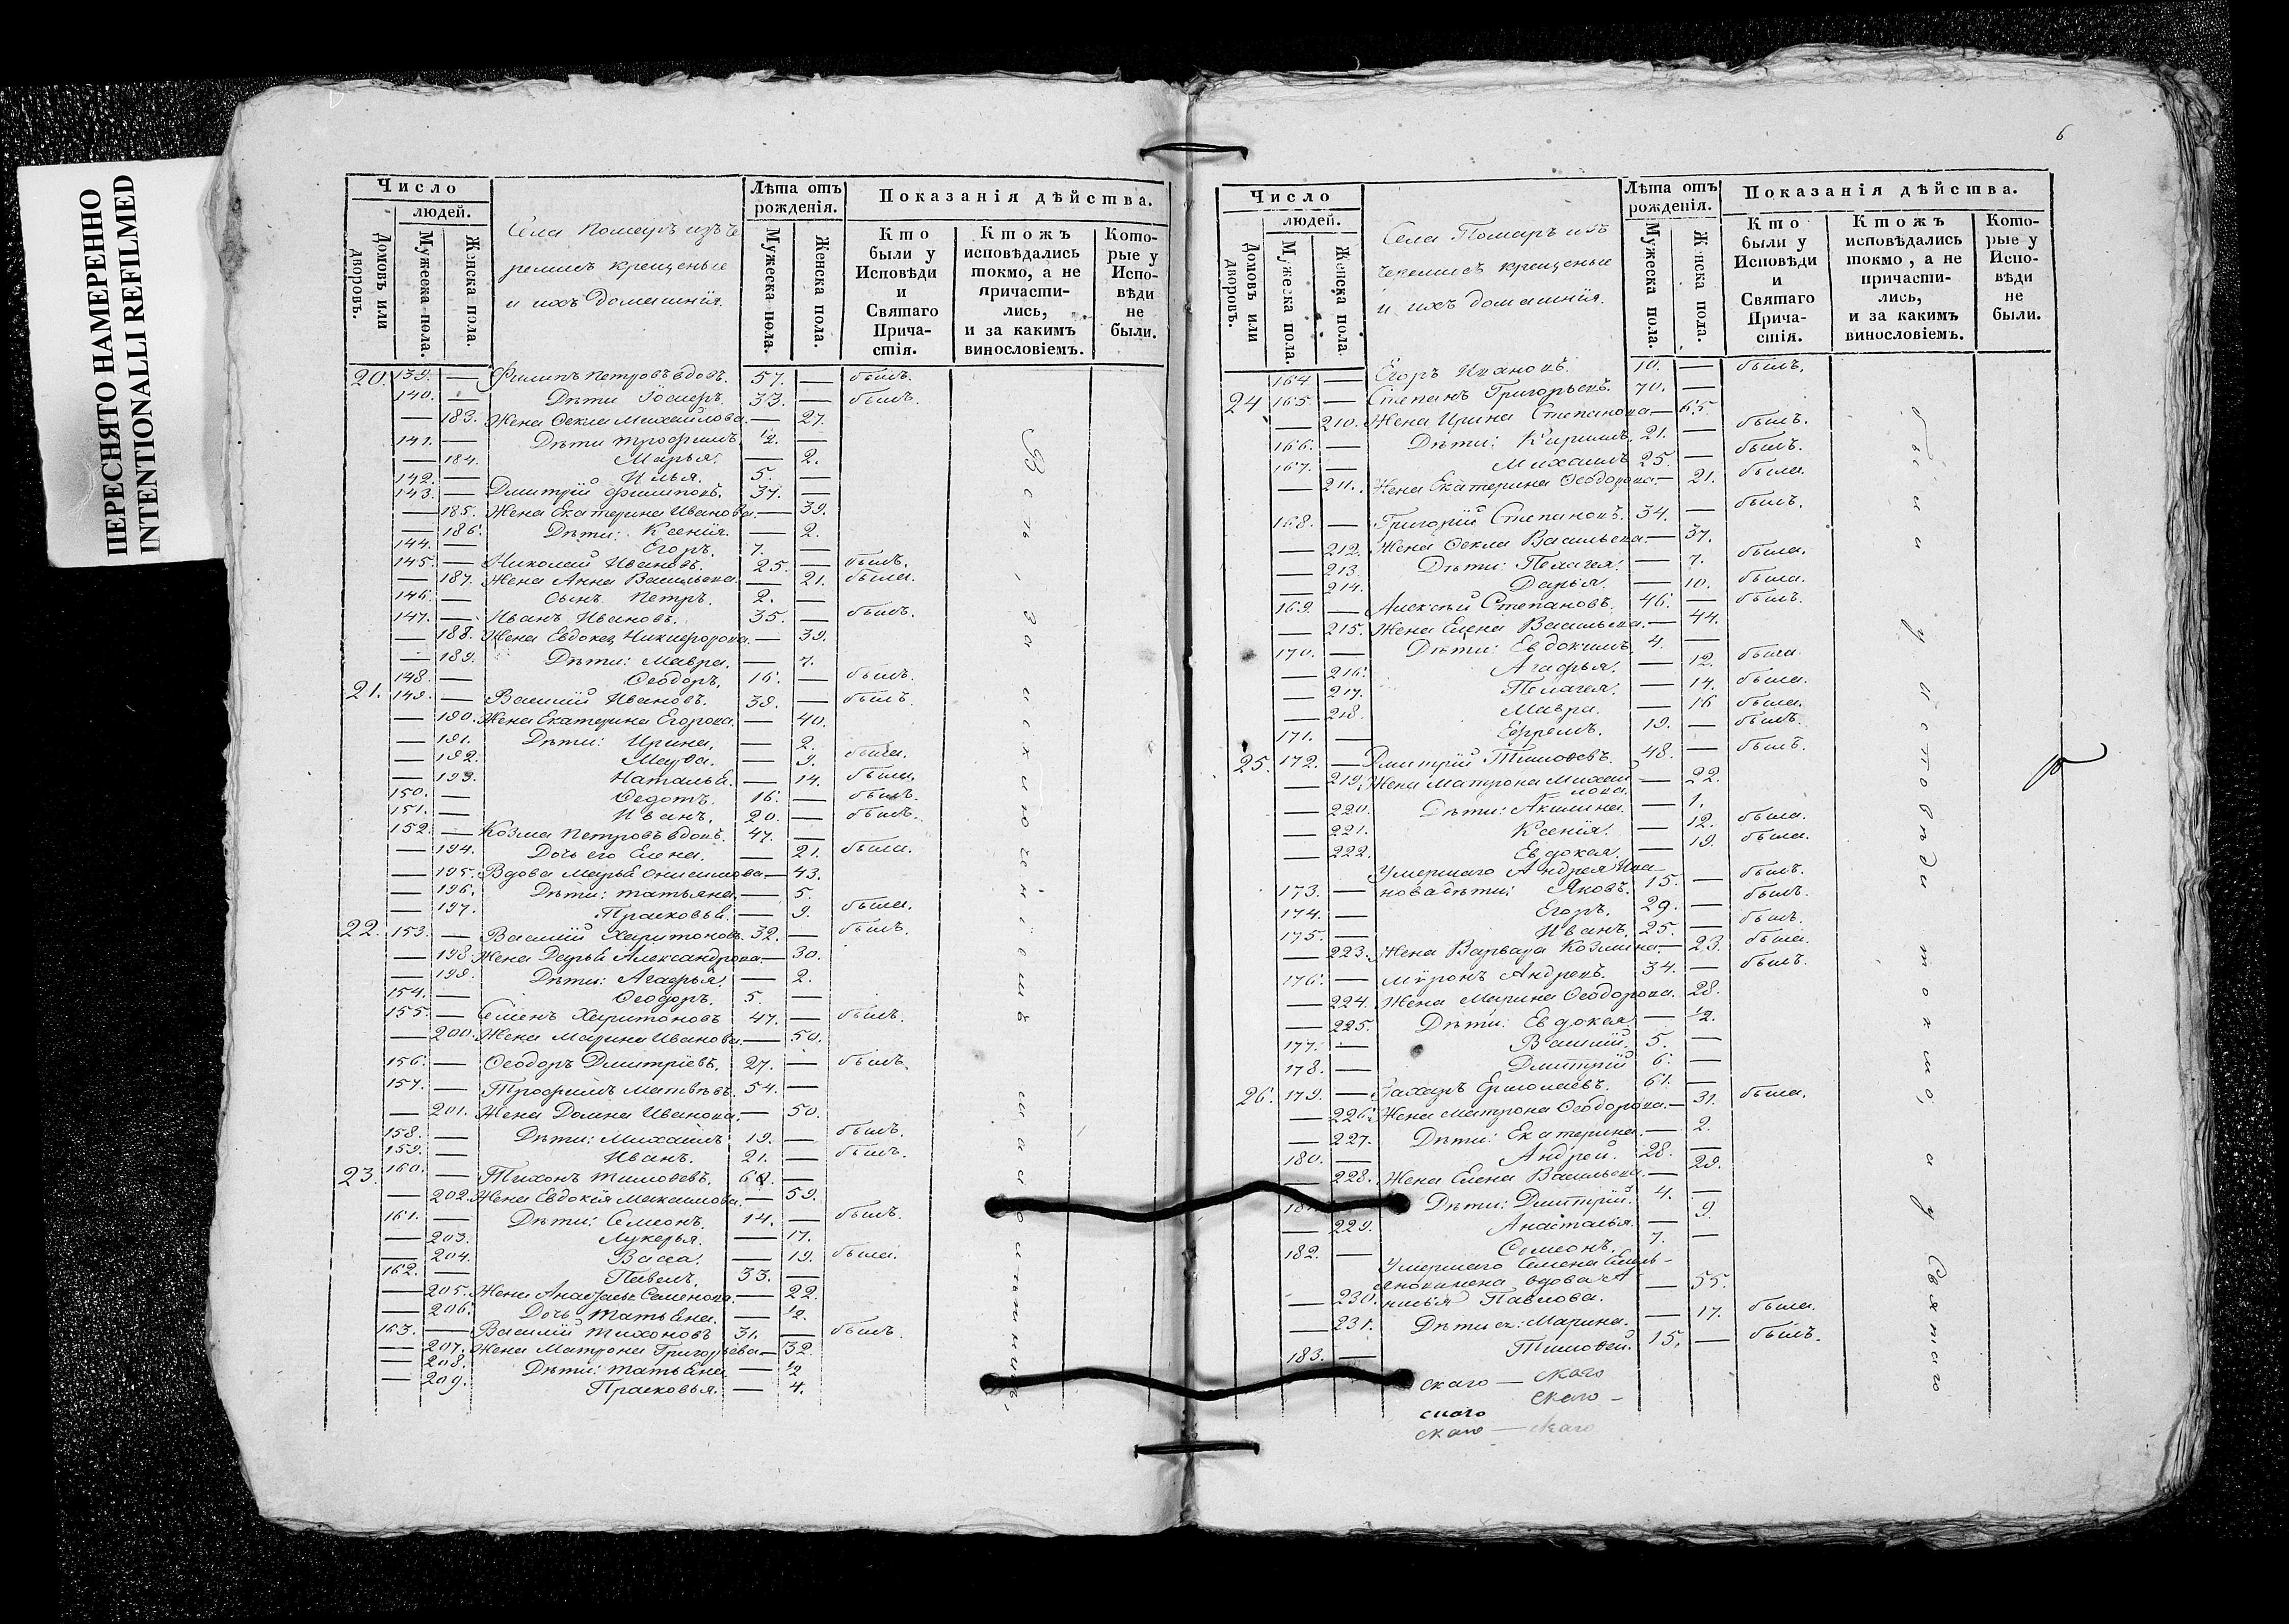 ПЕРЕСНЯТО НАМЕРЕННО
INTENTIONALLI REFILMED
Число
людей.
Домовъ или дворовъ.
Мужеска пола.
Женска пола.
Села Помаръ изъ че
ремисъ крещеные
и ихъ домашнія.
Лѣта отъ рожденія.
Мужеска пола.
Женска пола.
Показанія дѣйства.
Кто были у Исповѣди и Святаго Причастія.
Ктожъ исповѣдались токмо, а не причастились, и за какимъ винословіемъ.
Которые у Исповѣди не были.
20. 139. — Филипъ Петровъ вдовъ. 57. — былъ.
140. — Дѣти 33. — былъ.
— 183. Жена Ѳекла Михайлова — 27.
141. — Дѣти Трофимъ ½. —
— 184. Марья. — 2.
142. — Илья. 5. —
143. — Дмитрій Филиповъ. 37. —
— 185. Жена Екатерина Иванова. — 39.
— 186. Дѣти: Ксенія. — 2.
144. — Егоръ. 7. —
145. — Николай Ивановъ. 25. — былъ.
— 187. Жена Анна Васильева. — 21. была.
146. — Сынъ Петръ. 2. —
147. — Иванъ Ивановъ. 35. — былъ.
— 188. Жена Никифорова. — 39.
— 189. Дѣти: Мавра. — 7.
148. — Ѳеодоръ. 16. — былъ.
21. 149. — Василій Ивановъ. 39. — былъ.
— 190. Жена Екатерина Егорова. — 40.
— 191. Дѣти: Ирина. — 2.
— 192. — 9. была.
— 193. Наталья. — 14. была.
150. — Ѳедотъ. 16. — былъ.
151. — Иванъ. 20. — былъ.
152. — Козма Петровъ вдовъ. 47. —
— 194. Дочь его Елена. — 21. была.
— 195. Вдова Марья Онисимова — 43.
— 196. Дѣти: Татьяна. — 5.
— 197. Прасковья. — 9. была.
22. 153. — Василій Харитоновъ. 32. — былъ.
— 198. Жена Дарья Александрова. — 30.
— 199. Дѣти: Агафья. — 2.
154. — Ѳеодоръ. 5. —
155. — Семенъ Харитоновъ 47. — былъ.
— 200. Жена Марина Иванова. — 50.
156. — Ѳеодоръ Дмитріевъ. 27. — былъ.
157. — Трофимъ Матвѣевъ. 54. —
— 201. Жена Домна Иванова. — 50.
158. — Дѣти: Михаилъ 19. — былъ.
159. — Иванъ. 21. — былъ.
23. 160. — Тихонъ Тимоѳеевъ. —
— 202. Жена Евдокія Максимова. — 59.
161. — Дѣти: Семенъ. 14. — былъ.
— 203. Лукерья. — 17.
— 204. Васса. — 19. была.
162. — Павелъ. 33. —
— 205. Жена Семенова. — 22.
— 206. Дочь Татьяна. — ½.
163. — Василій Тихоновъ 31. — былъ.
— 207. Жена Матрона Григорьева — 32.
— 208. Дѣти: Татьяна — ½
— 209. Прасковья. — 4.
Всѣ за исключеніемъ
6
Число
людей.
Домовъ или дворовъ.
Мужеска пола.
Женска пола.
Села Помаръ изъ
черемисъ крещеные
и ихъ домашнія.
Лѣта отъ рожденія.
Мужеска пола.
Женска пола.
Показанія дѣйства.
Кто были у Исповѣди и Святаго Причастія.
Ктожъ исповѣдались токмо, а не причастились, и за какимъ винословіемъ.
Которые у Исповѣди не были.
164 — Егоръ Ивановъ. 10. — былъ.
24 165. — Степанъ Григорьевъ. 70. —
— 210. Жена Ирина Степанова — 65.
166. — Дѣти: Кирилъ. 21. — былъ.
167. — Михаилъ 25. — былъ.
— 211. Жена Екатерина Ѳеодорова — 21. была.
168. — Григорій Степановъ. 34. — былъ.
— 212. Жена Ѳекла Васильева. — 37.
— 213. Дѣти: Пелагея. — 7. была.
— 214. Дарья. — 10. была.
169. — Алексѣй Степановъ. 46. — былъ.
— 215. Жена Елена Васильева. — 44.
170. — Дѣти: Евдокимъ. 4. —
— 216. Агафья. — 12. была.
— 217. Пелагея. — 14. была.
— 218. Мавра. — 16 была.
171. — Ефремъ. 19. — былъ.
25. 172. — Дмитрій Тимоѳеевъ. 48. — былъ.
— 219. Жена Матрона Михай
лова. — 22.
— 220. Дѣти: Акилина. — 1.
— 221. Ксенія. — 12. была.
— 222. Евдокея. — 19. была.
Умершаго Андрея Ива-
173. — нова дѣти: Яковъ. 15. — былъ.
174. — Егоръ. 29. — былъ.
175. — Иванъ. 25. — былъ.
— 223. Жена Варвара Козмина — 23. была.
176. — Миронъ Андреевъ. 34. — былъ.
— 224. Жена Марина Ѳеодорова. 28.
— 225. Дѣти: Евдокея — ½.
177. — Василій. 5. —
178. — Дмитрій 6. —
26. 179. — Захаръ Ермолаевъ. 61. —
— 226. Жена Матрона Ѳеодорова. — 31. была.
— 227. Дѣти: Екатерина. — 2.
180. — Андрей. 28. —
— 228. Жена Елена Васильева. — 29.
181. — Дѣти: Дмитрій. 4. —
— 229. Анастасья. — 9.
182. — Семенъ. 7. —
Умершаго Семена Емель-
янова жена вдова А
— 230. Павлова. — 55.
— 231. Дѣти ея: Марина. — 17. была.
183. — Тимоѳей. 15. — былъ.
скаго — скаго
скаго —
скаго
скаго — скаго
были у исповѣди токмо, а у Святаго